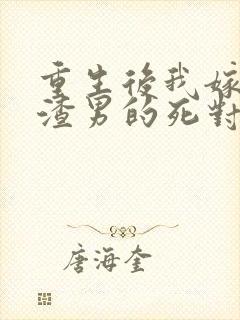 重生後我嫁
渣男的死對
唐海奎